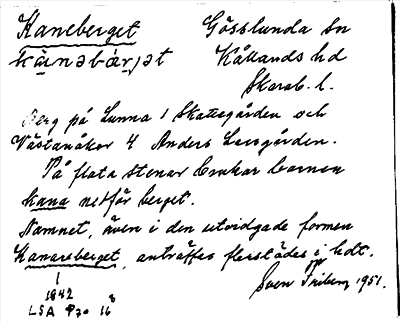 Kaneberget Gösslunda sn
kā̀nəbær̀jət Kållands hd
Skarab. l.
Berg på Lunna 1 Skattegården och
Västanåker 4 Anders Larsgården.
På flata stenar brukar barnen
kana nedför berget.
Namnet, även i den utvidgade formen
Kanareberget, anträffas flerstädes i hdt.
Sven Friberg 1951.
1842
LSA P30 16